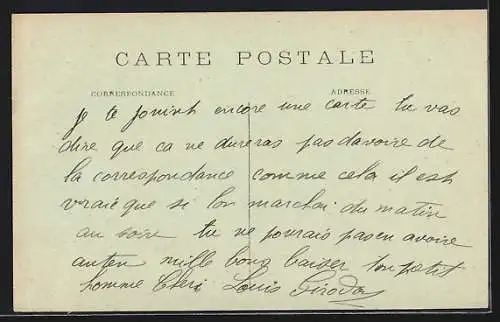 CARTE POSTALE
CORRESPONDANCE ADRESSE
je te encore une carte tu vas
dire que ca ne dureras pas davoire de
la correspondance comme cela il est
vraie que si lon marchai du matin
au soire tu ne pourais pas en avoire
auten mille bons baiser ton petit
homme Cheri Louis